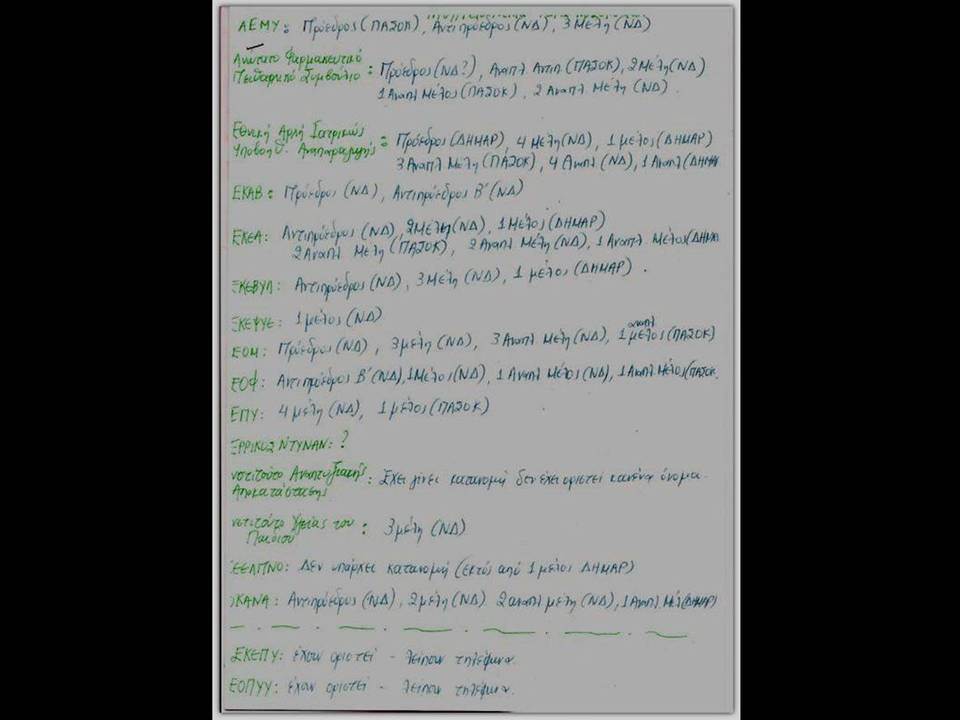 ΑΕΜΥ: Πρόεδρος (ΠΑΣΟΚ), Αντιπρόεδρος (ΝΔ), 3 Μέλη (ΝΔ)
Ανώτατο Φαρμακευτικό
Πειθαρχικό Συμβούλιο : Πρόεδρος (ΝΔ?), Αναπλ. Αντιπ (ΠΑΣΟΚ), 2 Μέλη (ΝΔ)
1 Αναπλ Μέλος (ΠΑΣΟΚ), 2 Αναπλ Μέλη (ΝΔ).
Εθνική Αρχή Ιατρικώς
Υποβοηθ. Αναπαραγωγής : Πρόεδρος (ΔΗΜΑΡ), 4 μέλη (ΝΔ), 1 μέλος (ΔΗΜΑΡ)
3 Αναπλ Μέλη (ΠΑΣΟΚ), 4 Αναπλ (ΝΔ), 1 Αναπλ (ΔΗΜΑΡ
ΕΚΑΒ : Πρόεδρος (ΝΔ), Αντιπρόεδρος Β' (ΝΔ)
ΕΚΕΑ: Αντιπρόεδρος (ΝΔ), 2 Μέλη (ΝΔ), 1 Μέλος (ΔΗΜΑΡ)
2 Αναπλ Μέλη (ΠΑΣΟΚ), 2 Αναπλ Μέλη (ΝΔ), 1 Αναπλ. Μέλος (ΔΗΜΑ
ΕΚΕΒΥΛ: Αντιπρόεδρος (ΝΔ), 3 Μέλη (ΝΔ), 1 μέλος (ΔΗΜΑΡ).
ΕΚΕΨΥΕ: 1 μέλος (ΝΔ)
ΕΟΜ: Πρόεδρος (ΝΔ), 3 μέλη (ΝΔ), 3 Αναπλ Μέλη (ΝΔ), 1 αναπλ μέλος (ΠΑΣΟΚ)
ΕΟΦ: Αντιπρόεδρος Β' (ΝΔ), 1 Μέλος (ΝΔ), 1 Αναπλ Μέλος (ΝΔ), 1 Αναπλ Μέλος (ΠΑΣΟΚ.
ΕΠΥ: 4 μέλη (ΝΔ), 1 μέλος (ΠΑΣΟΚ)
ΕΡΡΙΚΟΣ ΝΤΥΝΑΝ: ?
νστιτούτο Αναπτυξιακής
Αποκατάστασης : Έχει γίνει κατανομή δεν έχει οριστεί κανένα όνομα.
νστιτούτο Υγείας του
Παιδιού : 3 μέλη (ΝΔ)
ΚΕΕΛΠΝΟ: Δεν υπάρχει κατανομή (εκτός από 1 μέλος ΔΗΜΑΡ)
ΟΚΑΝΑ: Αντιπρόεδρος (ΝΔ), 2 μέλη (ΝΔ) 2 αναπλ μέλη (ΝΔ), 1 Αναπλ. Μέλ (ΔΗΜΑΡ)
ΣΚΕΠΥ: έχουν οριστεί - λείπουν τηλέφωνα.
ΕΟΠΥΥ: έχουν οριστεί - λείπουν τηλέφωνα.